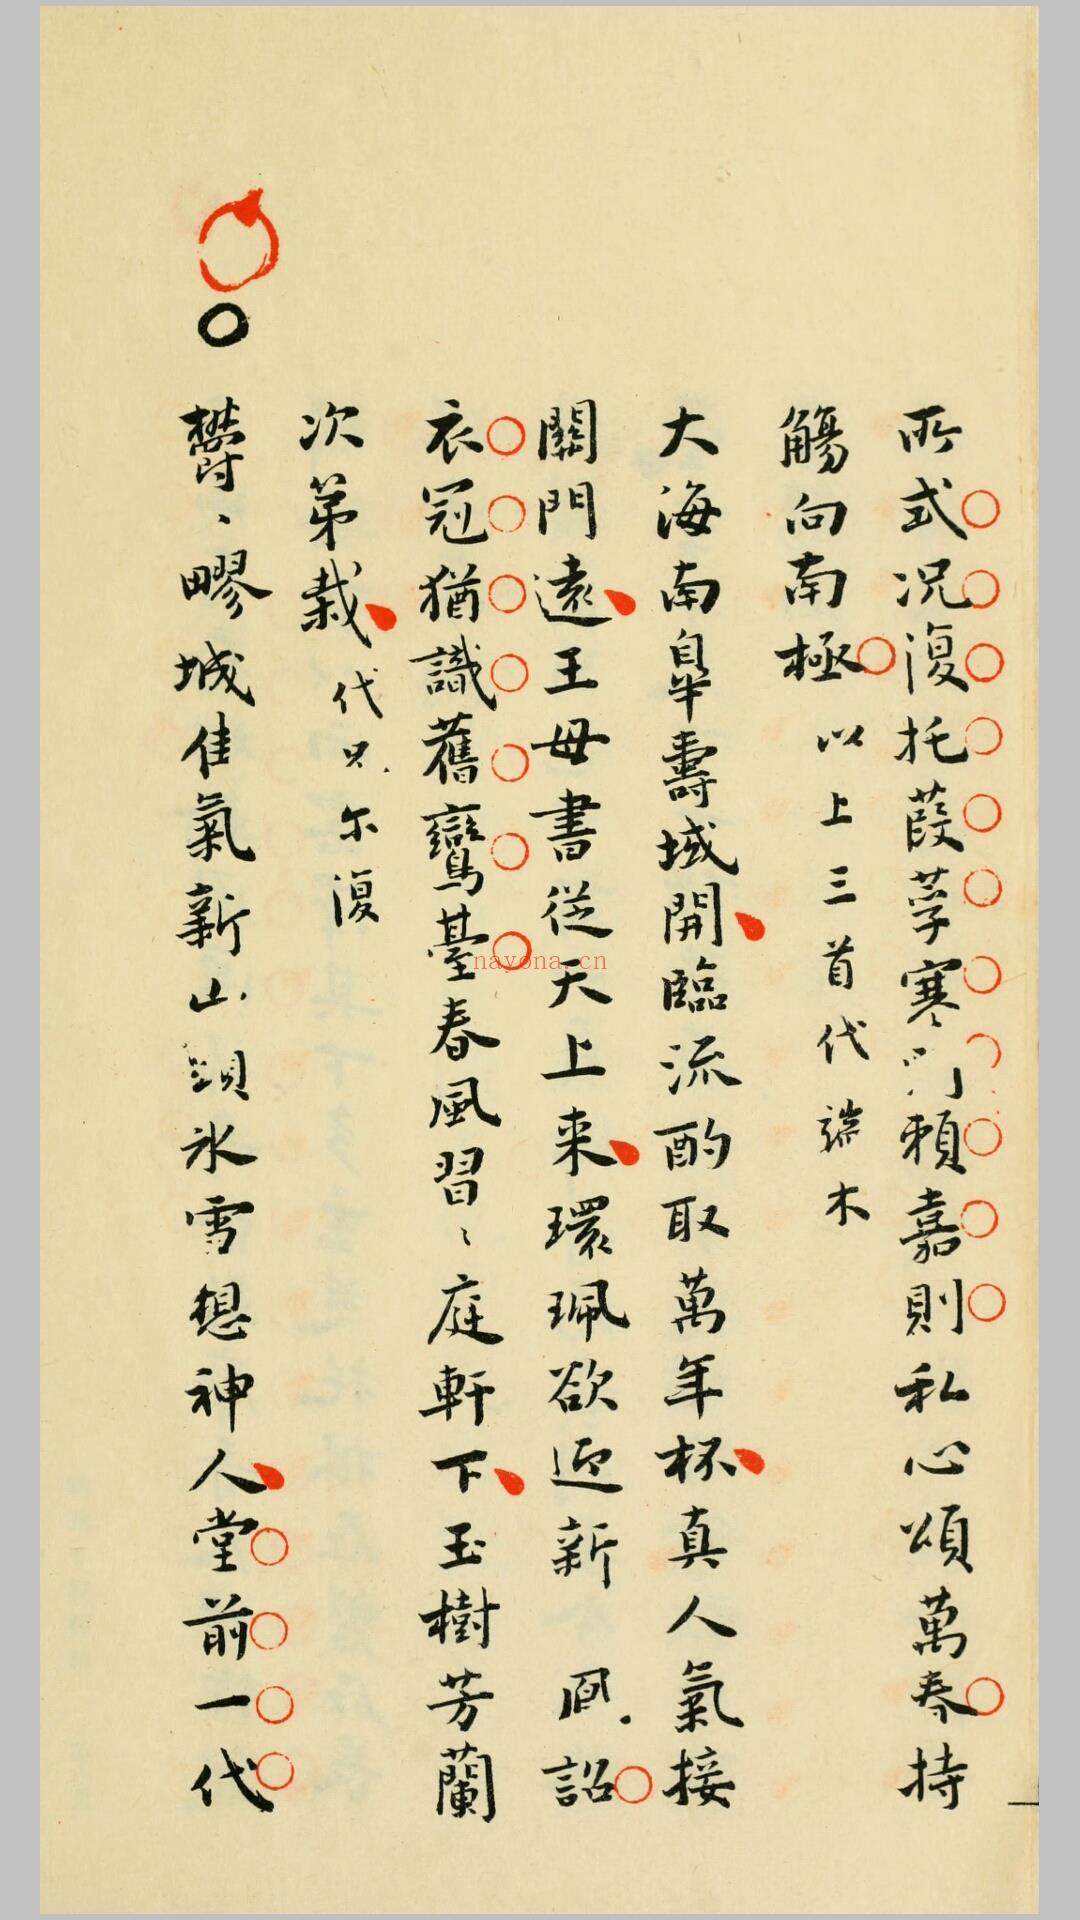 所式况復托葭莩寒門賴嘉則私心頌萬春持
觴向南極 以上三首代端木
大海南皐壽域開臨流酌取萬年杯真人氣接
關門遠王母書從天上来環珮欲迎新詔
衣冠猶識舊鸞臺春風習〻庭軒下玉樹芳蘭
次第栽 代只尔復
欝〻嘐城佳氣新山頭氷雪想神人堂前一代
nayona.cn